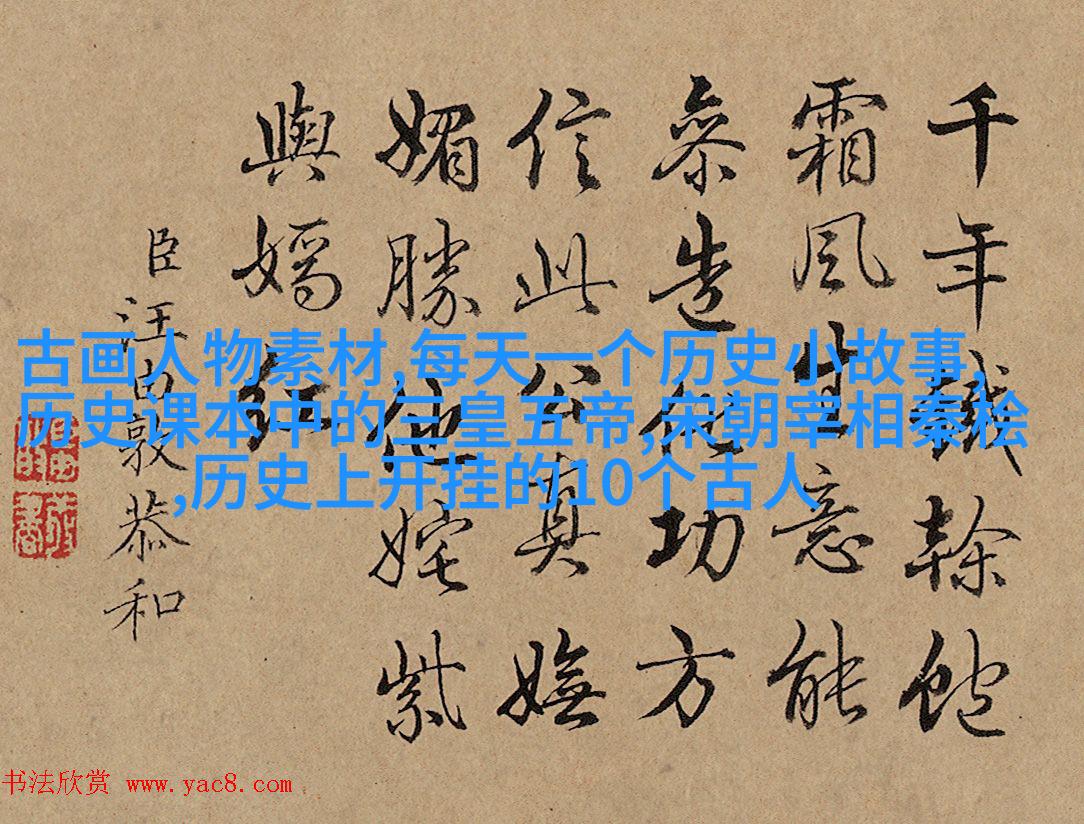 千年鐵榦飽
霜風生意能
參造化功方
信此公真嫵
媚勝他姹紫
與嫣紅
臣汪由敦恭和
古画人物素材,每天一个历史小故事,
历史课本中的三皇五帝,宋朝宰相秦桧
,历史上开挂的10个古人
书法欣赏 www.yac8.com